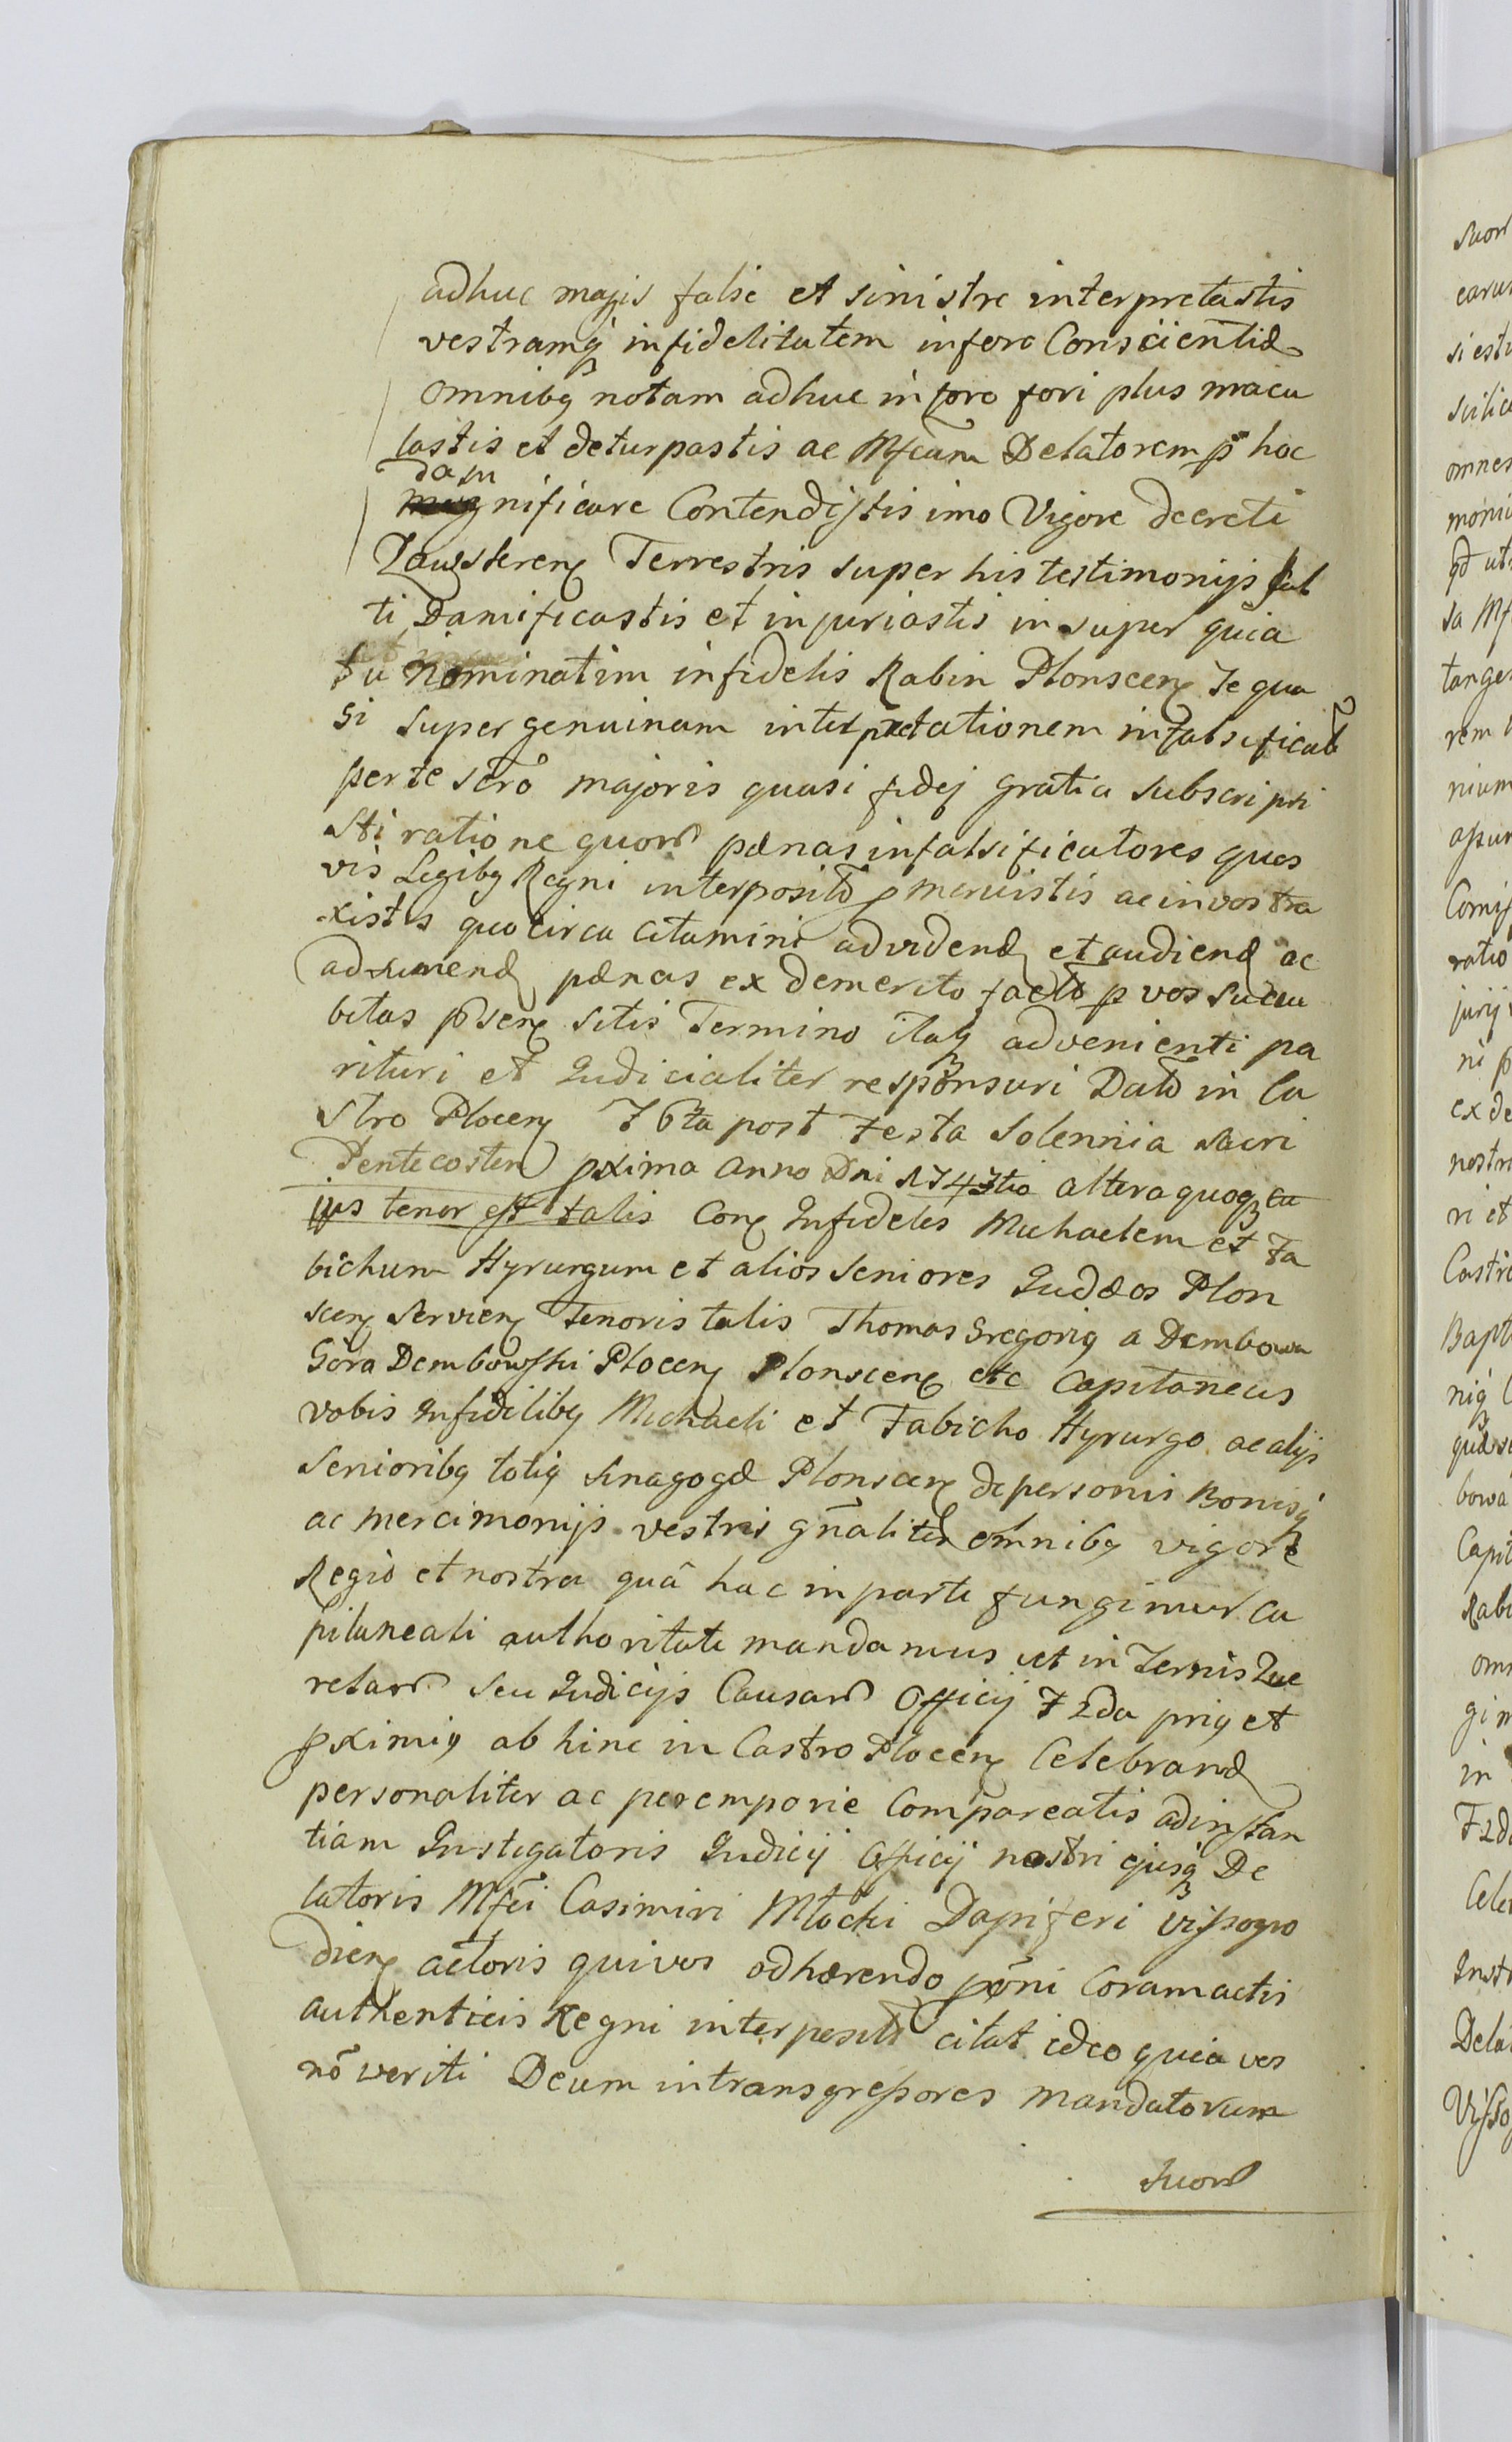 adhuc magis false et sinistre interpretastis
vestramq infidelitatem in foro Conscientiæ
omnibq notam adhuc in foro fori plus macu
lastis et deturpastis ac Mfcum Delatorem p hoc
dam
nificare Contendistis imo Vigore decreti
Zawskren Terrestris super his testimonijs lat
ti Damificastis et injuriastis in super quia
tu nominatim infidelis Rabin Plonscen Te qua
si super genuinam interpretationem infalsificat
per te scro majoris quasi fidej gratia subscripsi
sti ratione quor pænas in falsificatores quos
vis Legibq Regni interposit p meruistis ac in vos tra
xistis quocirca citamini ad vidend et audiend ac
ad luend pænas ex demerito facto p vos succu
bitas psen sitis Termino itaq advenienti pa
rituri et Judicialiter responsuri Dat in Ca
stro Plocen F 6ta post Festa Solennia Sacri
Pentecosten pxima Anno Dni 1743tio altera quoq cu
jus tenor est talis Con Infideles Michaelem et Fa
bichum Hyrurgum et alios Seniores Judæos Plon
scen Servien Tenoris talis Thomas Gregoriq a Dembowa
Góra Dembowski Plocen Plonscen etc Capitaneus
vobis Infidelibq Michaeli et Fabicho Hyrurgo ac alijs
Senioribq totiq Sinagogæ Plonscen de personis Bonisq
ac mercimonijs vestris gnaliter omnibq vigore
Regio et nostra quâ hac in parte fungimur Ca
pitaneali authoritate mandamus ut in Termis Que
relar seu Judicijs Causar Officij F 2da priq et
pximiq ab hinc in Castro Plocen Celebrand
personaliter ac peremporie Compareatis ad instan
tiam Instigatoris Judicij Officij nostri ejusq De
latoris Mfci Casimiri Młocki Dapiferi Vissogro
dien actoris qui vos adhærendo pœni Coram actis
authenticis Regni interposit citat ideo quia vos
nō veriti Deum in transgressores mandatorum
suor